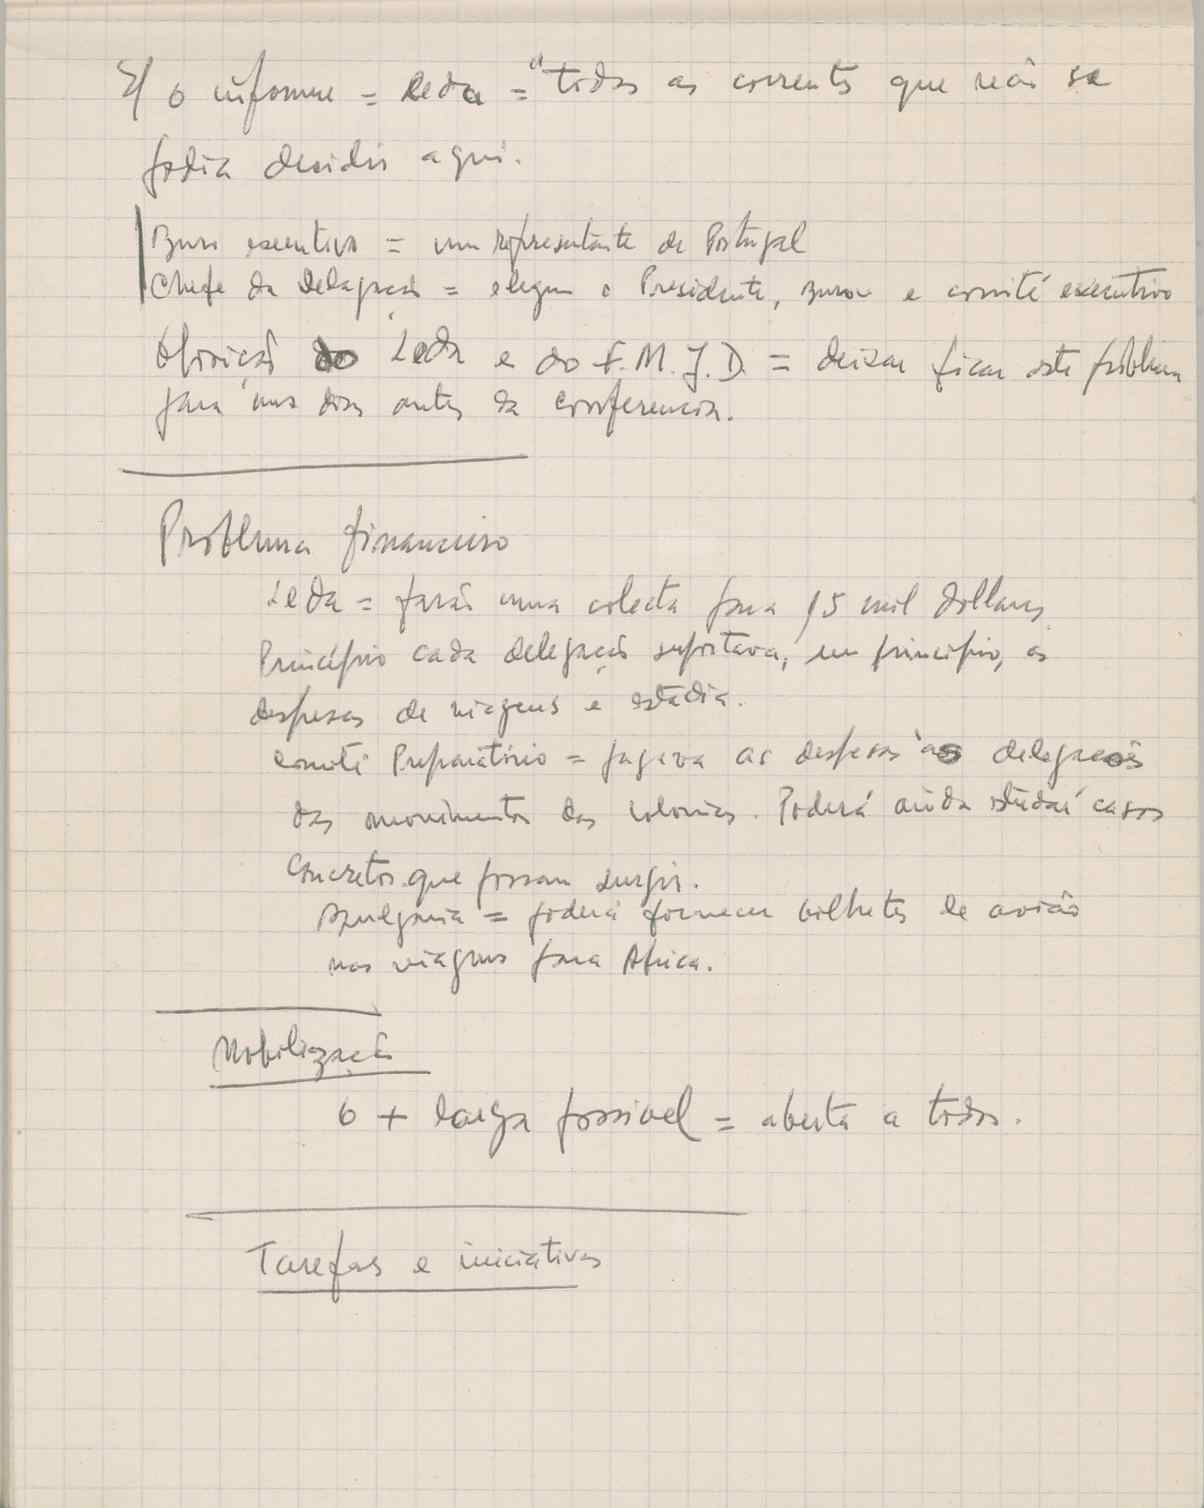 S/ o informe = Leda = "todos as correntes que não se
podia decidir aqui.
Buro executivo = um representante de Portugal
Chefe da Delegação = elegem o Presidente, Buro e comité executivo
Opinião do Leda e do F.M.J.D. = deixar ficar este problema
para uns dias antes da conferencia.
Problema financeiro
Leda = farão uma colecta para 15 mil dollars.
Princípio cada delegação suportava, em principio, as
despesas de viagens e estadia.
Comité Preparatório = pagava as despesas às delegações
dos movimentos das colonias. Poderá ainda estudar casos
concretos que possam surgir.
= poderá fornecer bilhetes de avião
nas viagens para Africa.
Mobilização
o + larga possivel = aberta a todos.
Tarefas e iniciativas